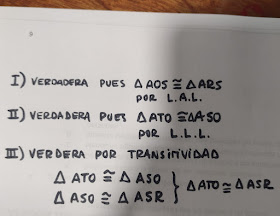 I) VERDADERA PUES △ AOS ≅ △ ARS
POR L.A.L.
II) VERDADERA PUES △ ATO ≅ △ASO
POR L.L.L.
III) VERDERA POR TRANSITIVIDAD
△ ATO ≅ △ ASO
△ ASO ≅ △ ASR } △ ATO ≅ △ ASR